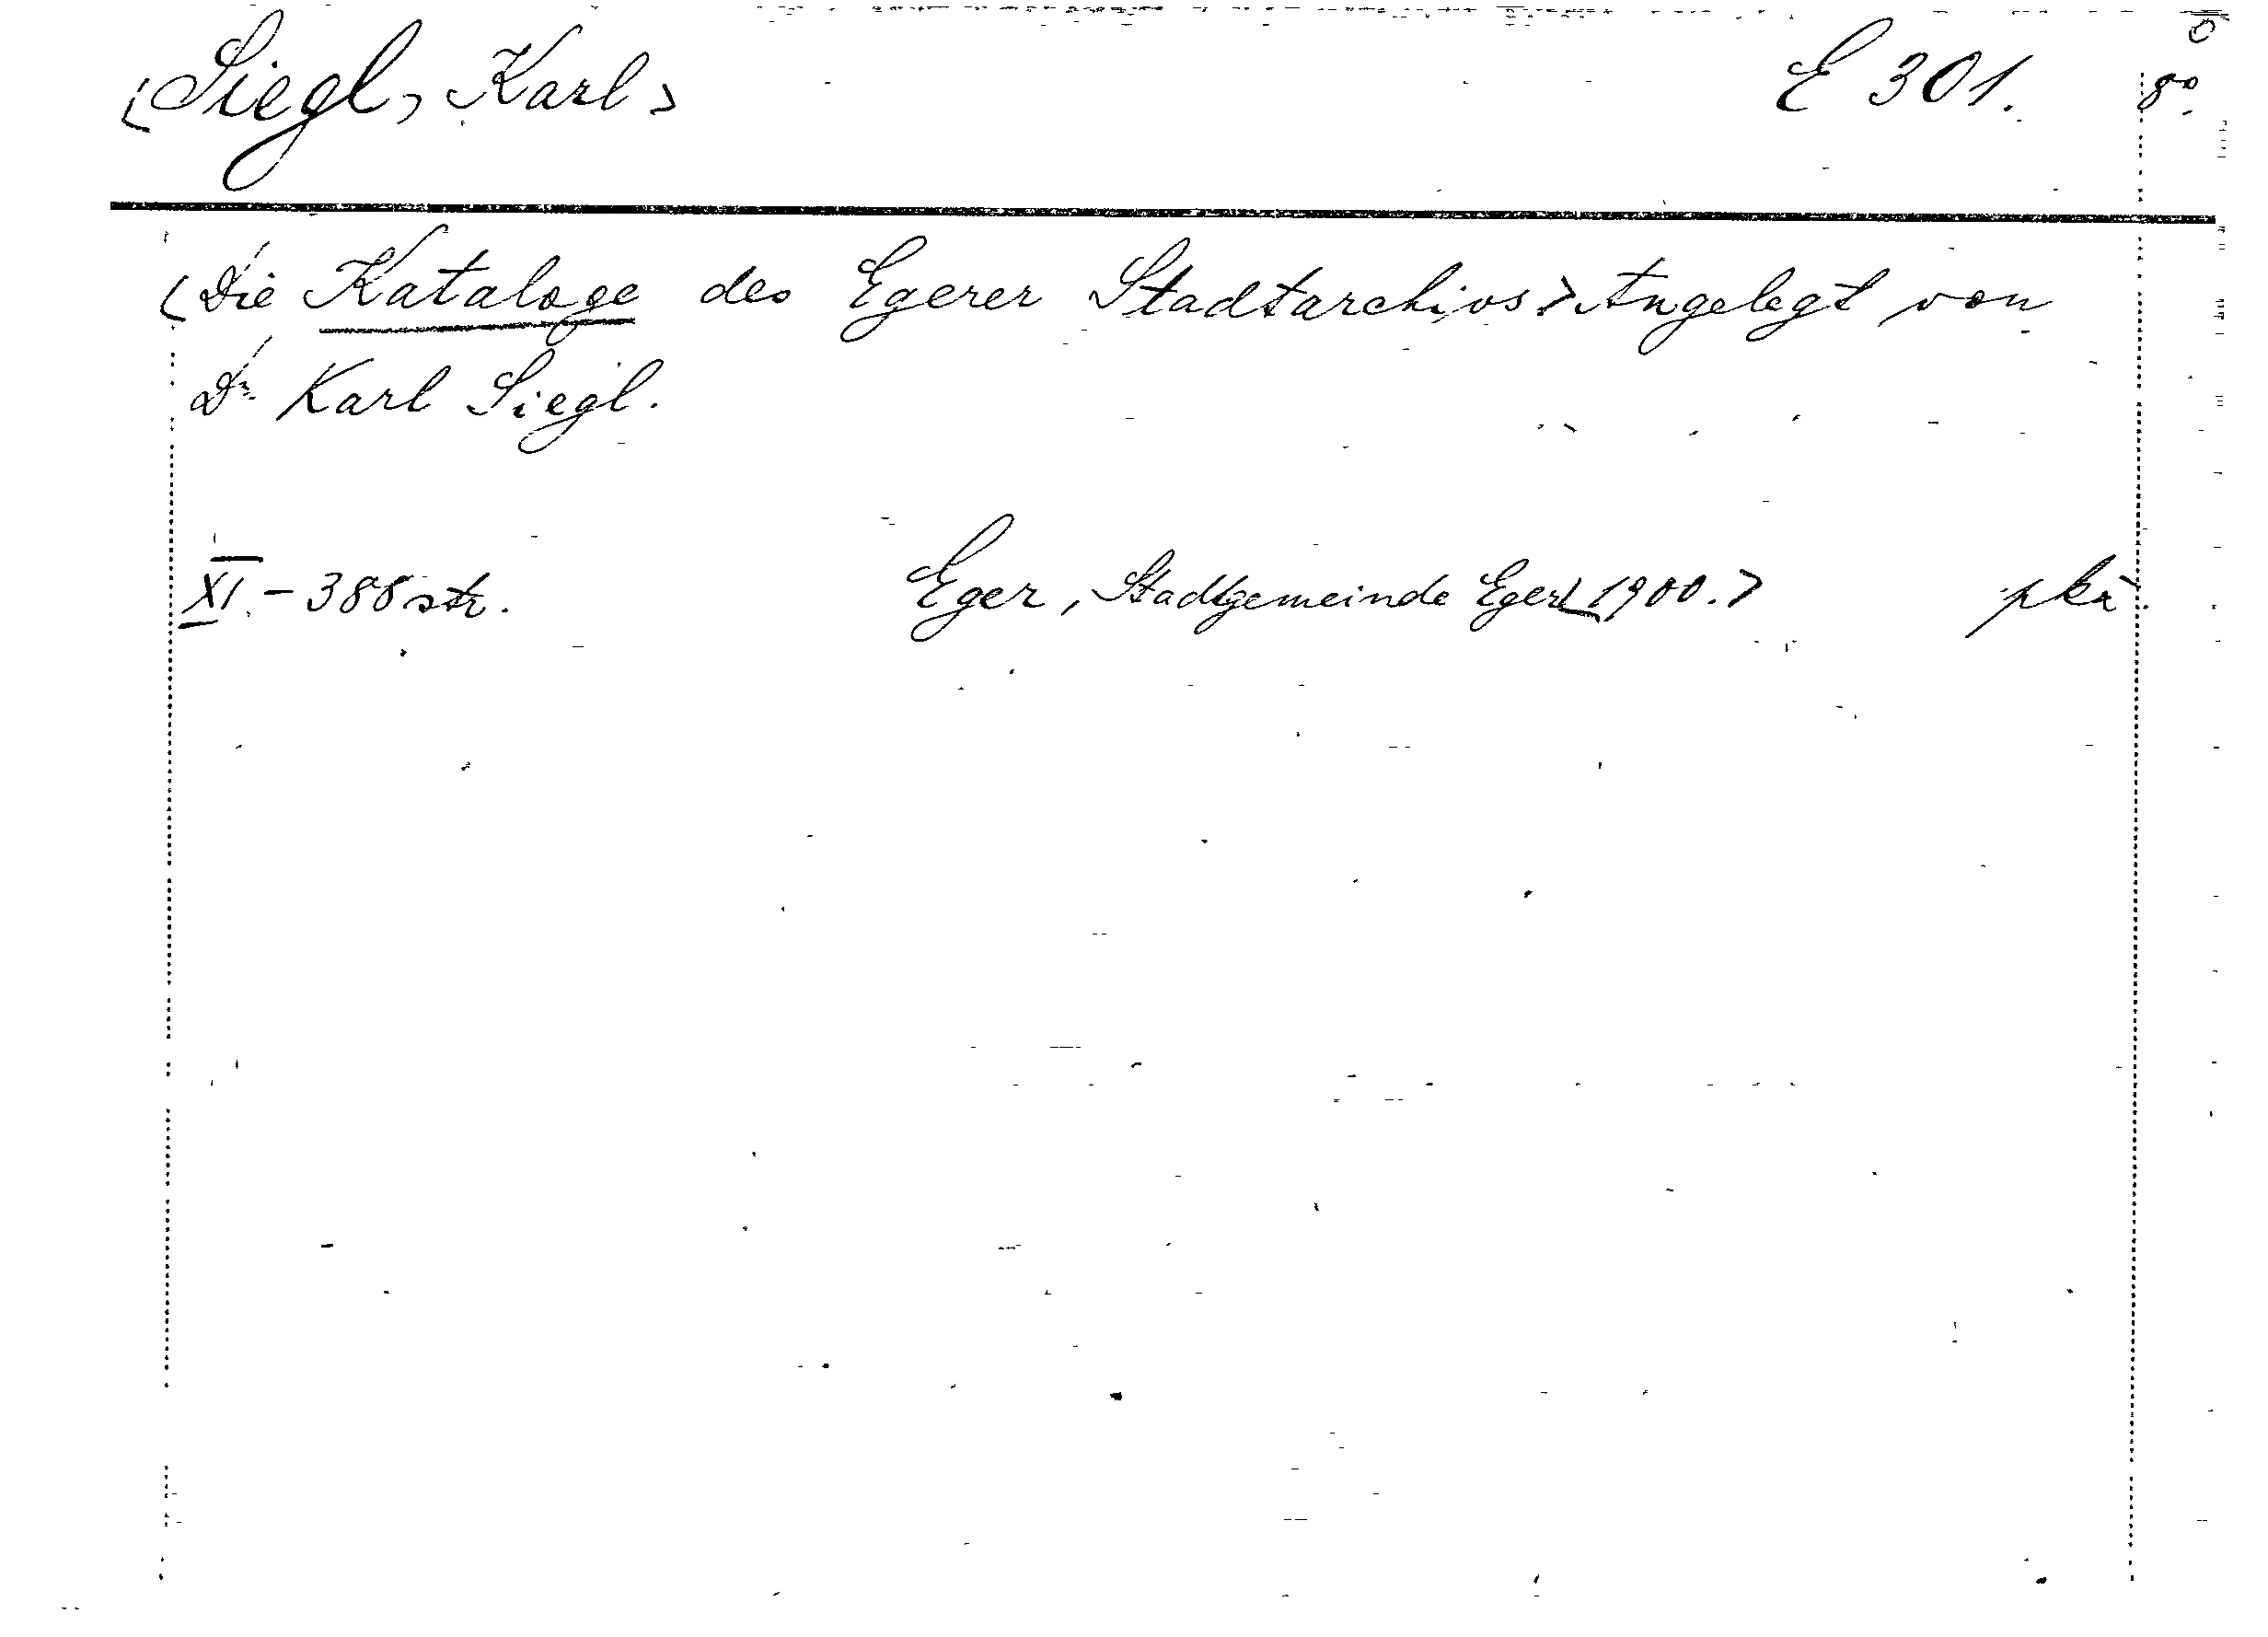 <Siegl, Karl> E 301. 8°
<Die Kataloge des Egerer Stadtarchivs> Angelegt von
Dr Karl Siegl.
XI - 388 str. Eger, Stadtgemeinde Eger <1900.>